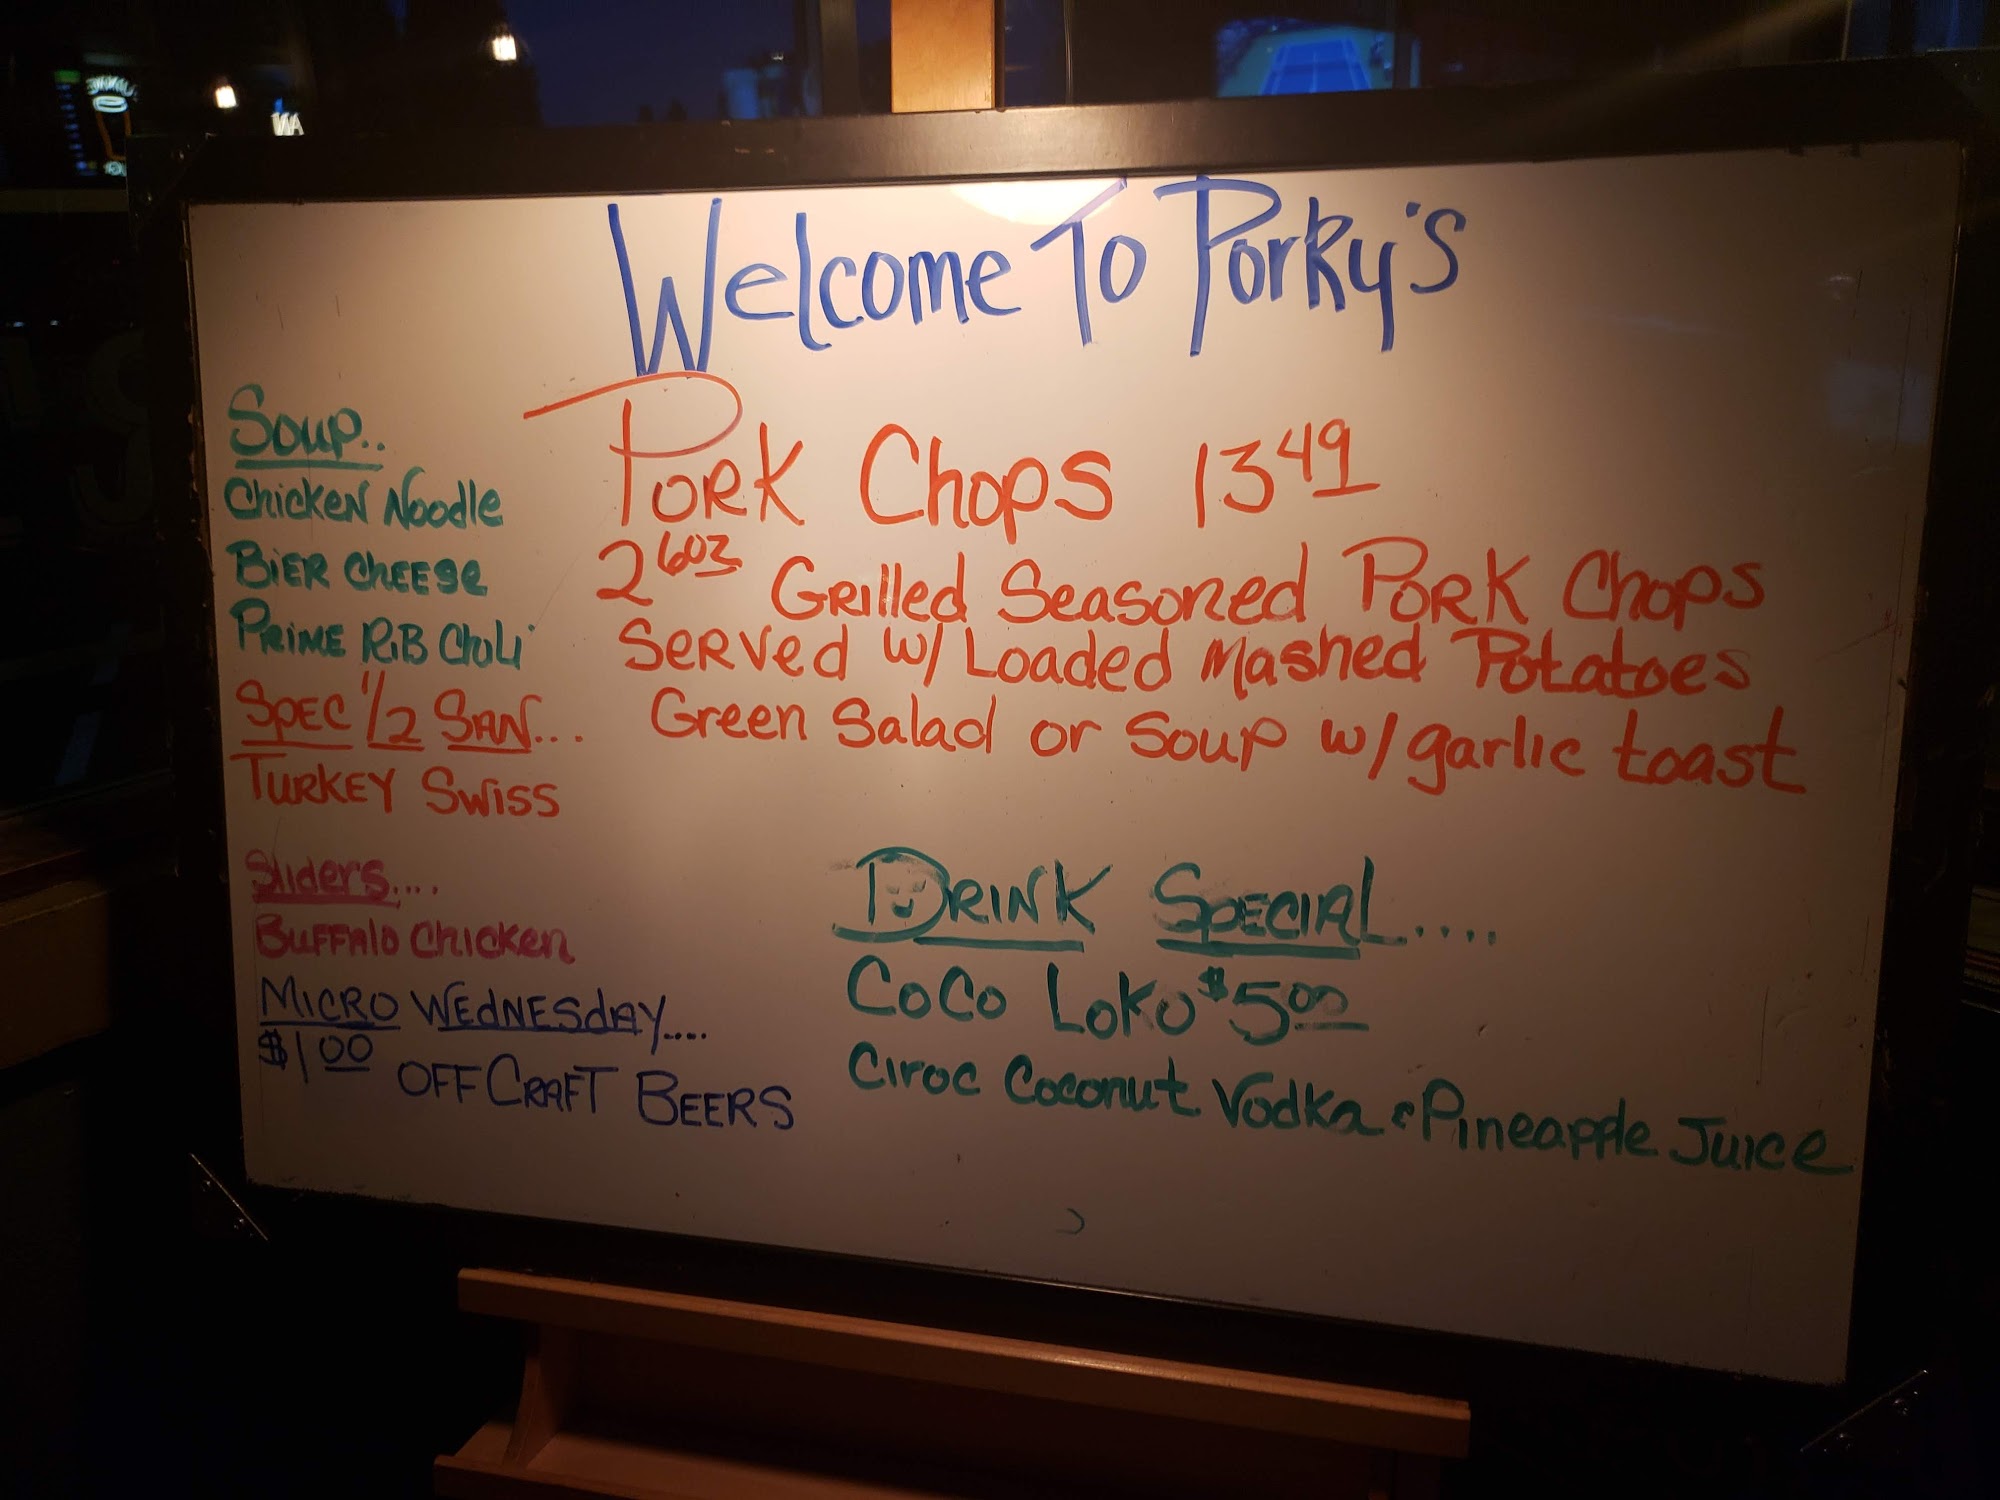 Welcome To Porky's
Soup..
Chicken Noodle
Bier Cheese
Prime Rib Chili
Spec 1/2 San...
Turkey Swiss
Sliders....
Buffalo Chicken
Micro Wednesday....
$1.00 OFF Craft Beers
Pork Chops 13 49
2 6oz Grilled Seasoned Pork Chops
Served w/ Loaded Mashed Potatoes
Green Salad or Soup w/ garlic toast
Drink Special....
CoCo Loko $5.00
Ciroc Coconut Vodka & Pineapple Juice